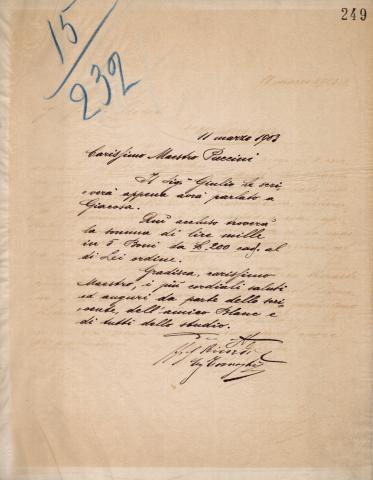 249
15/232
11 marzo 1903
Carissimo Maestro Puccini
Il Sigr Giulio Le scri
verà appena avrà parlato a
Giacosa.
Qui accluso troverà
la somma di lire mille
in 5 Boni da £. 200 cad. al
di Lei ordine.
Gradisca, carissimo
Maestro, i più cordiali saluti
ed auguri da parte dello scri
vente, dell'amico Blanc e
di tutti dello studio.
Ricordi
Tornaghi